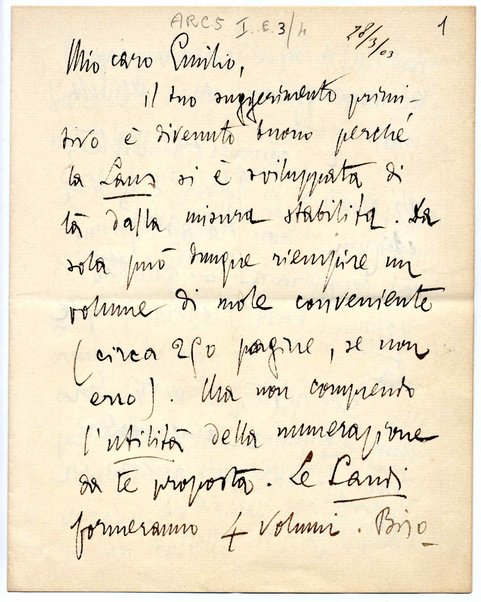 ARC5 I.E.3/4
28/3/03
1
Mio caro Emilio,
il tuo suggerimento primi-
tivo è divenuto buono perché
la Laus si è sviluppata di
là dalla misura stabilita. Da
sola può dunque riempire un
volume di mole conveniente
(circa 250 pagine, se non
erro). Ma non comprendo
l'utilità della numerazione
da te proposta. Le Laudi
formeranno 4 volumi. Biso-